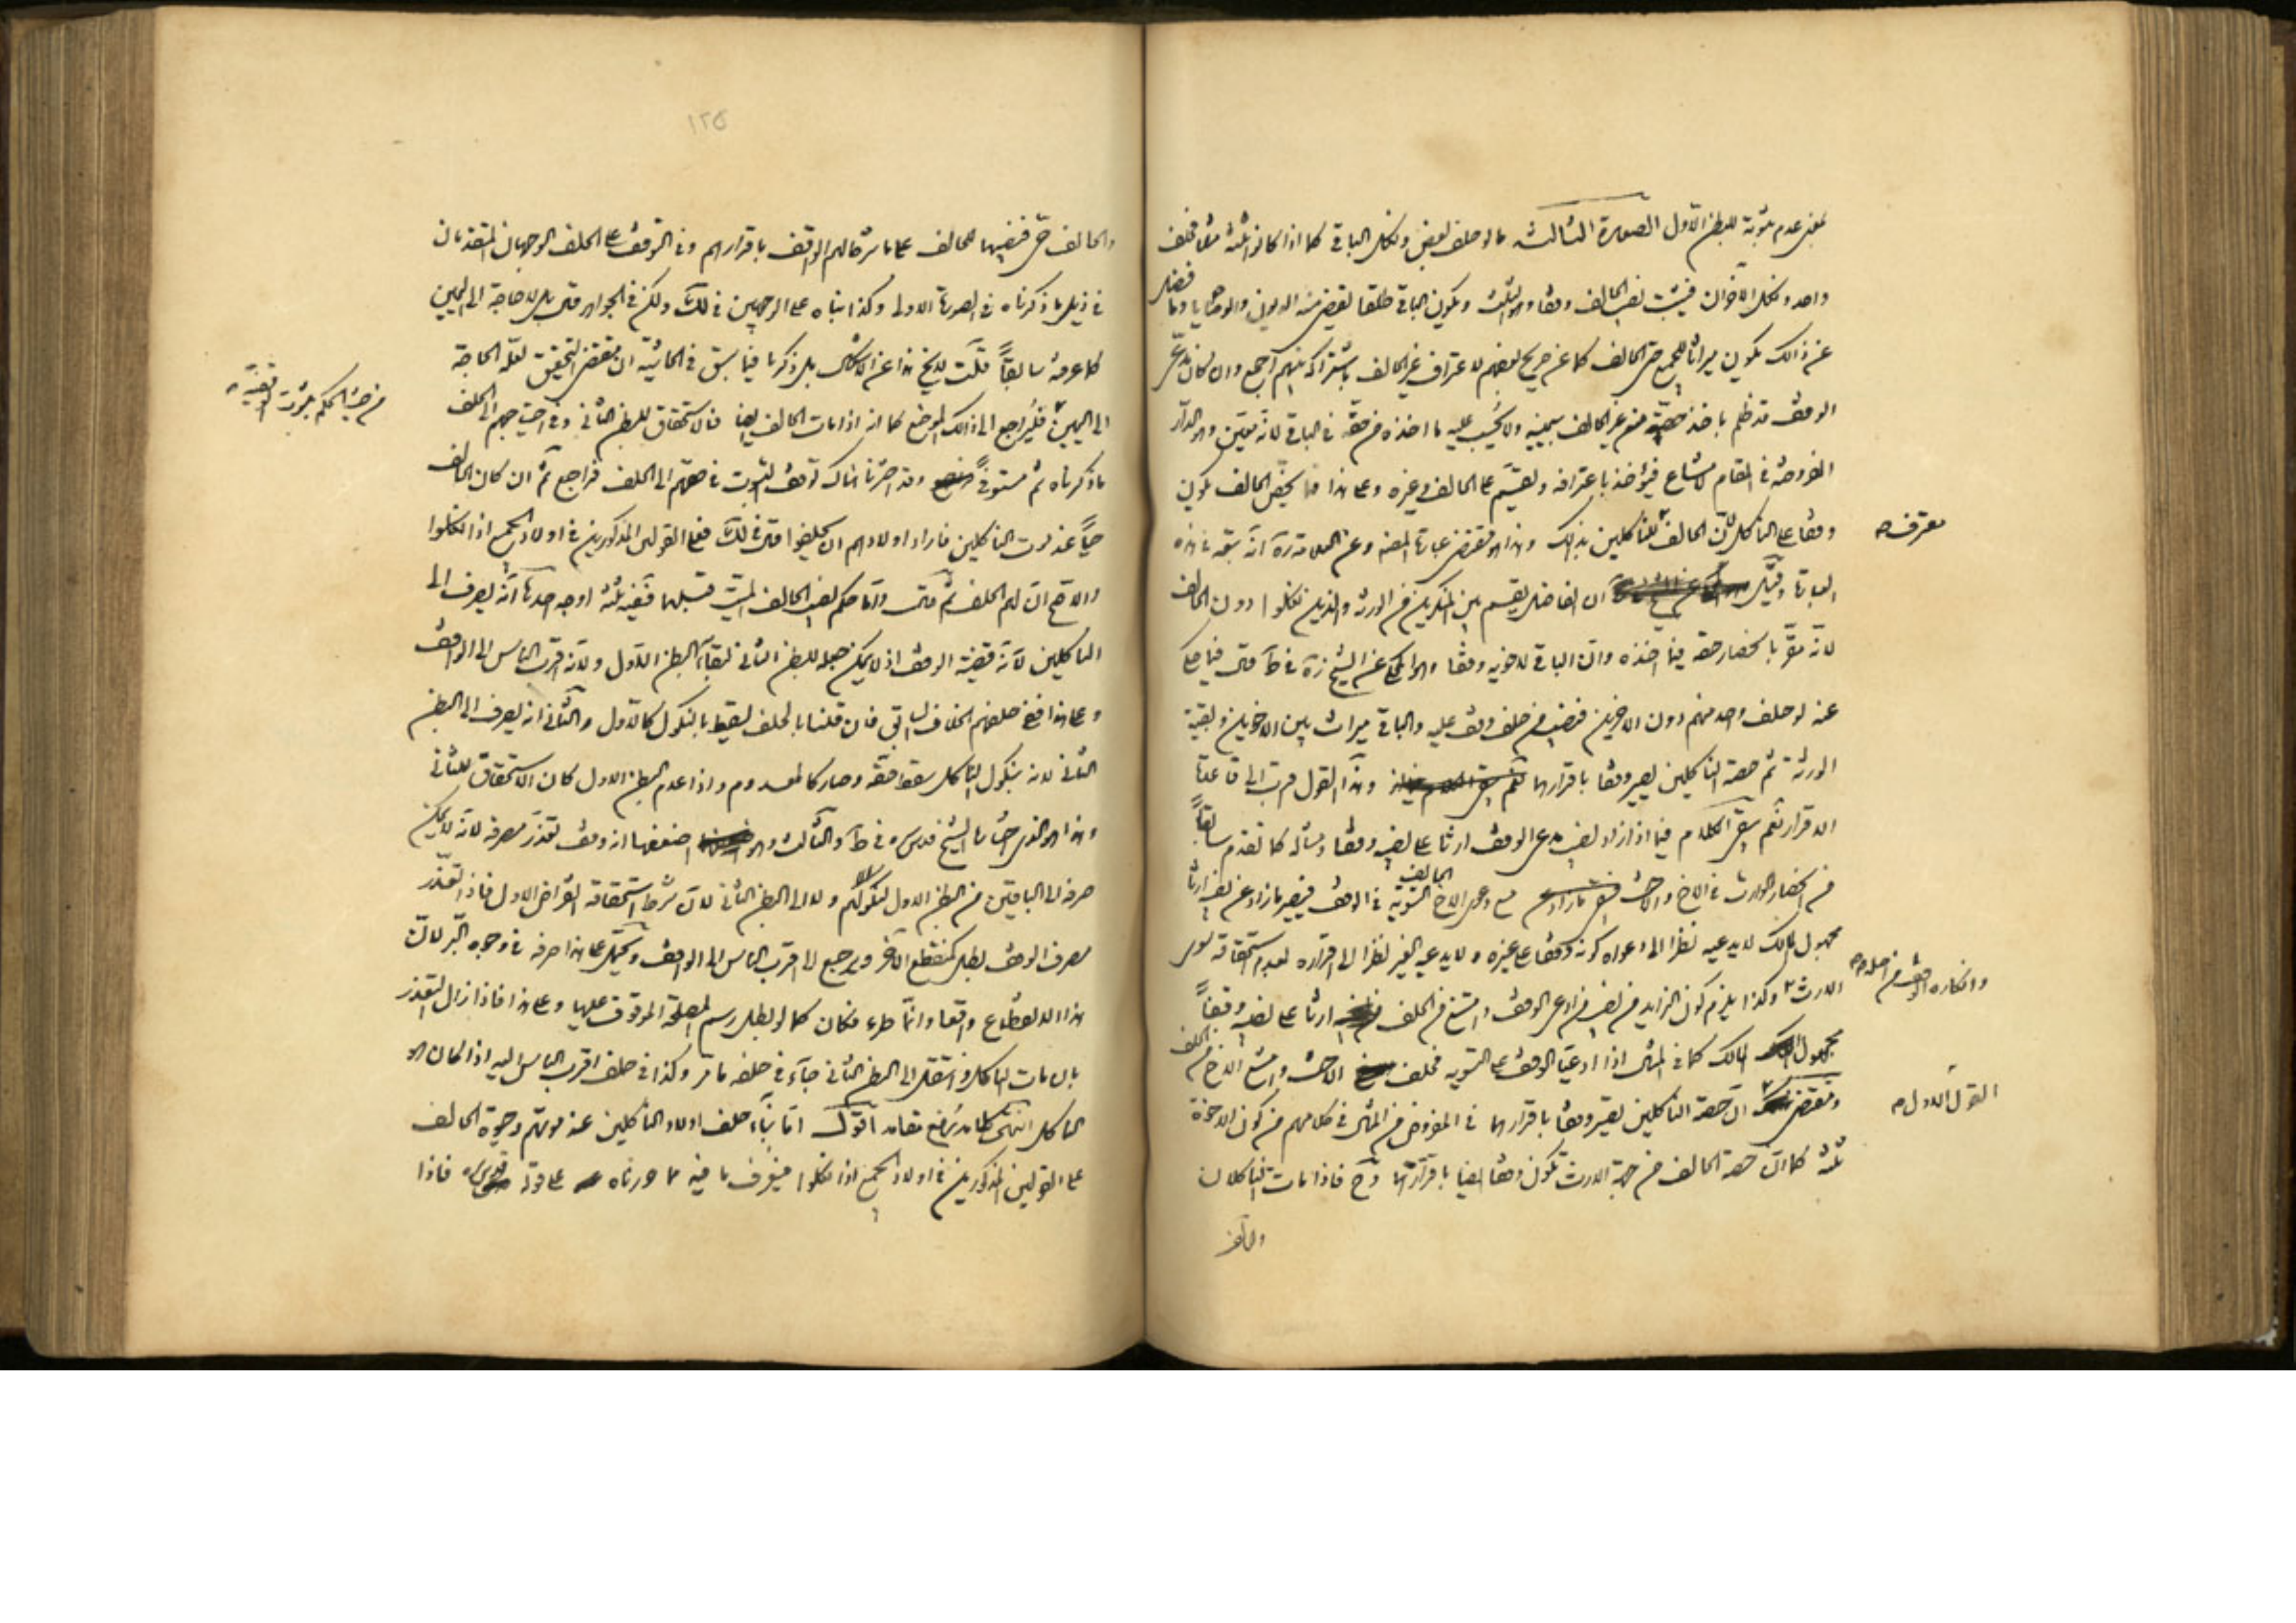 بمعنى عدم ثبوته للبطن الاول الصورة الثالثة ما لو حلف بعض ونكل الباقي كما اذا كانوا ثلثة مثلا فحلف
واحد ونكل الاخوان فيثبت نصيب الحالف وقفا وهو الثلث ويكون الباقي طلقا يقضى منه الديون والوصايا وما فضل
عن ذلك يكون ميراثا للجميع حتى الحالف كما عن صريح بعضهم لاعتراف غير الحالف باشتراكه بينهم اجمع وان كان مدعي
الوقف قد ظلم باخذ حصته من غير الحالف بيمينه ولا يحسب عليه ما اخذه من حقه في الباقي لانه معين والدار
المفروضة في المقام مشاع فيؤخذ باعترافه ويقسم على الحالف وغيره وعلى هذا فما يخص الحالف يكون
وقفا على الناكلين لان الحالف معترف للناكلين بذلك وهذا هو مقتضى عبارة المصنف وعن العلامة ره انه تبعه في هذه
العبارة وقيل ان الفاضل يقسم بين المنكرين من الورثة والذين نكلوا دون الحالف
لانه مقر بانحصار حقه فيما اخذه وان الباقي لاخويه وقفا وهو المحكي عن الشيخ ره في ط قال فيما حكي
عنه لو حلف واحد منهم دون الاخرين فنصيب من حلف وقف عليه والباقي ميراث بين الاخوين وبقية
الورثة ثم حصة الناكلين يصير وقفا باقرارهما وهذا القول قريب الى قاعدة
الاقرار نعم بقي الكلام فيما اذا زاد نصيب مدعي الوقف ارثا على نصيبه وقفا ومثاله كما تقدم سابقا
من انحصار الوارث في الاخ والاخت مع دعوى الاخ الحالف التسوية في الوقف فيصير ما زاد عن نصيبه ارثا
مجهول المالك لا يدعيه نظرا الى دعواه كونه وقفا على غيره ولا يدعيه الغير نظرا الى اقراره لعدم استحقاقه سوى
الارث وانكاره الوقف من اصله وكذا يلزم كون الزايد من نصيب من ادعى الوقف وامتنع من الحلف ارثا على نصيبه وقفا
مجهول المالك كما في المثال اذا ادعيا الوقف على التسوية فحلف الاخت وامتنع الاخ من الحلف
ومقتضى القول الاول ان حصة الناكلين يصير وقفا باقرارهما في المفروض من المثال في كلامهم من كون الاخوة
ثلثة كما ان حصة الحالف من جهة الارث تكون وقفا ايضا باقراره وح فاذا مات الناكلان
والحالف
١٢٥
والحالف حي فنصيبهما للحالف على ما شرطه لهم الواقف باقرارهم وفي التوقف على الحلف الوجهان المتقدمان
في ذيل ما ذكرناه في الصورة الاولى وكذا بناه على الوجهين في لك ولكن في الجواهر قال بل لا حاجة الى اليمين
كما عرفته سابقا قلت لا يخ هذا عن الاشكال بل ذكرنا فيما سبق في الحاشية ان مقتضى التحقيق لعله الحاجة
الى اليمين من حيث الحكم بثبوت الوقفية فليراجع الى ذلك الموضع كما انه اذا مات الحالف ايضا فالاستحقاق للبطن الثاني وفي احتياجهم الى الحلف
ما ذكرناه ثم مستوفى وقد اخترنا هناك توقف الثبوت في حقهم الى الحلف فراجع ثم ان كان الحالف
حيا عند موت الناكلين فاراد اولادهم ان يحلفوا قال في لك فعلى القولين المذكورين في اولاد الجميع اذا نكلوا
والاصح ان لهم الحلف ثم قال واما حكم نصيب الحالف الميت قبلهما ففيه ثلثة اوجه احدها انه يصرف الى
الناكلين لانه قضية الوقف اذ لا يمكن جعله للبطن الثاني لبقاء البطن الاول ولانه اقرب الناس الى الواقف
وعلى هذا ففي حلفهم الخلاف السابق فان قلنا بالحلف سقط بالنكول كالاول والثاني انه يصرف الى البطن
الثاني لانه بنكول الناكل سقط حقه وصار كالمعدوم واذا عدم البطن الاول كان الاستحقاق للثاني
وهذا هو الذي اختاره الشيخ قدس سره في ط والثالث وهو اضعفها انه وقف تعذر مصرفه لانه لا يمكن
صرفه الى الباقين من البطن الاول لنكولهم ولا الى البطن الثاني لان شرط استحقاقه انقراض الاول فاذا تعذر
مصرف الوقف بطل كمنقطع الاخر ويرجع الى اقرب الناس الى الواقف ويحتمل على هذا صرفه في وجوه البر لان
هذا الانقطاع واقعا وانما طرء فكان كما لو بطل رسم المصلحة الموقوف عليها وعلى هذا فاذا زال التعذر
بان مات الناكل وانتقل الى البطن الثاني جاء في حلفه ما مر وكذا في حلف اقرب الناس اليه اذا كان هو
الناكل انتهى كلامه رفع مقامه اقول اما بناء حلف اولاد الناكلين عند موتهم وحيوة الحالف
على القولين المذكورين في اولاد الجميع اذا نكلوا فيعرف ما فيه مما حررناه على قوله قدس سره فاذا